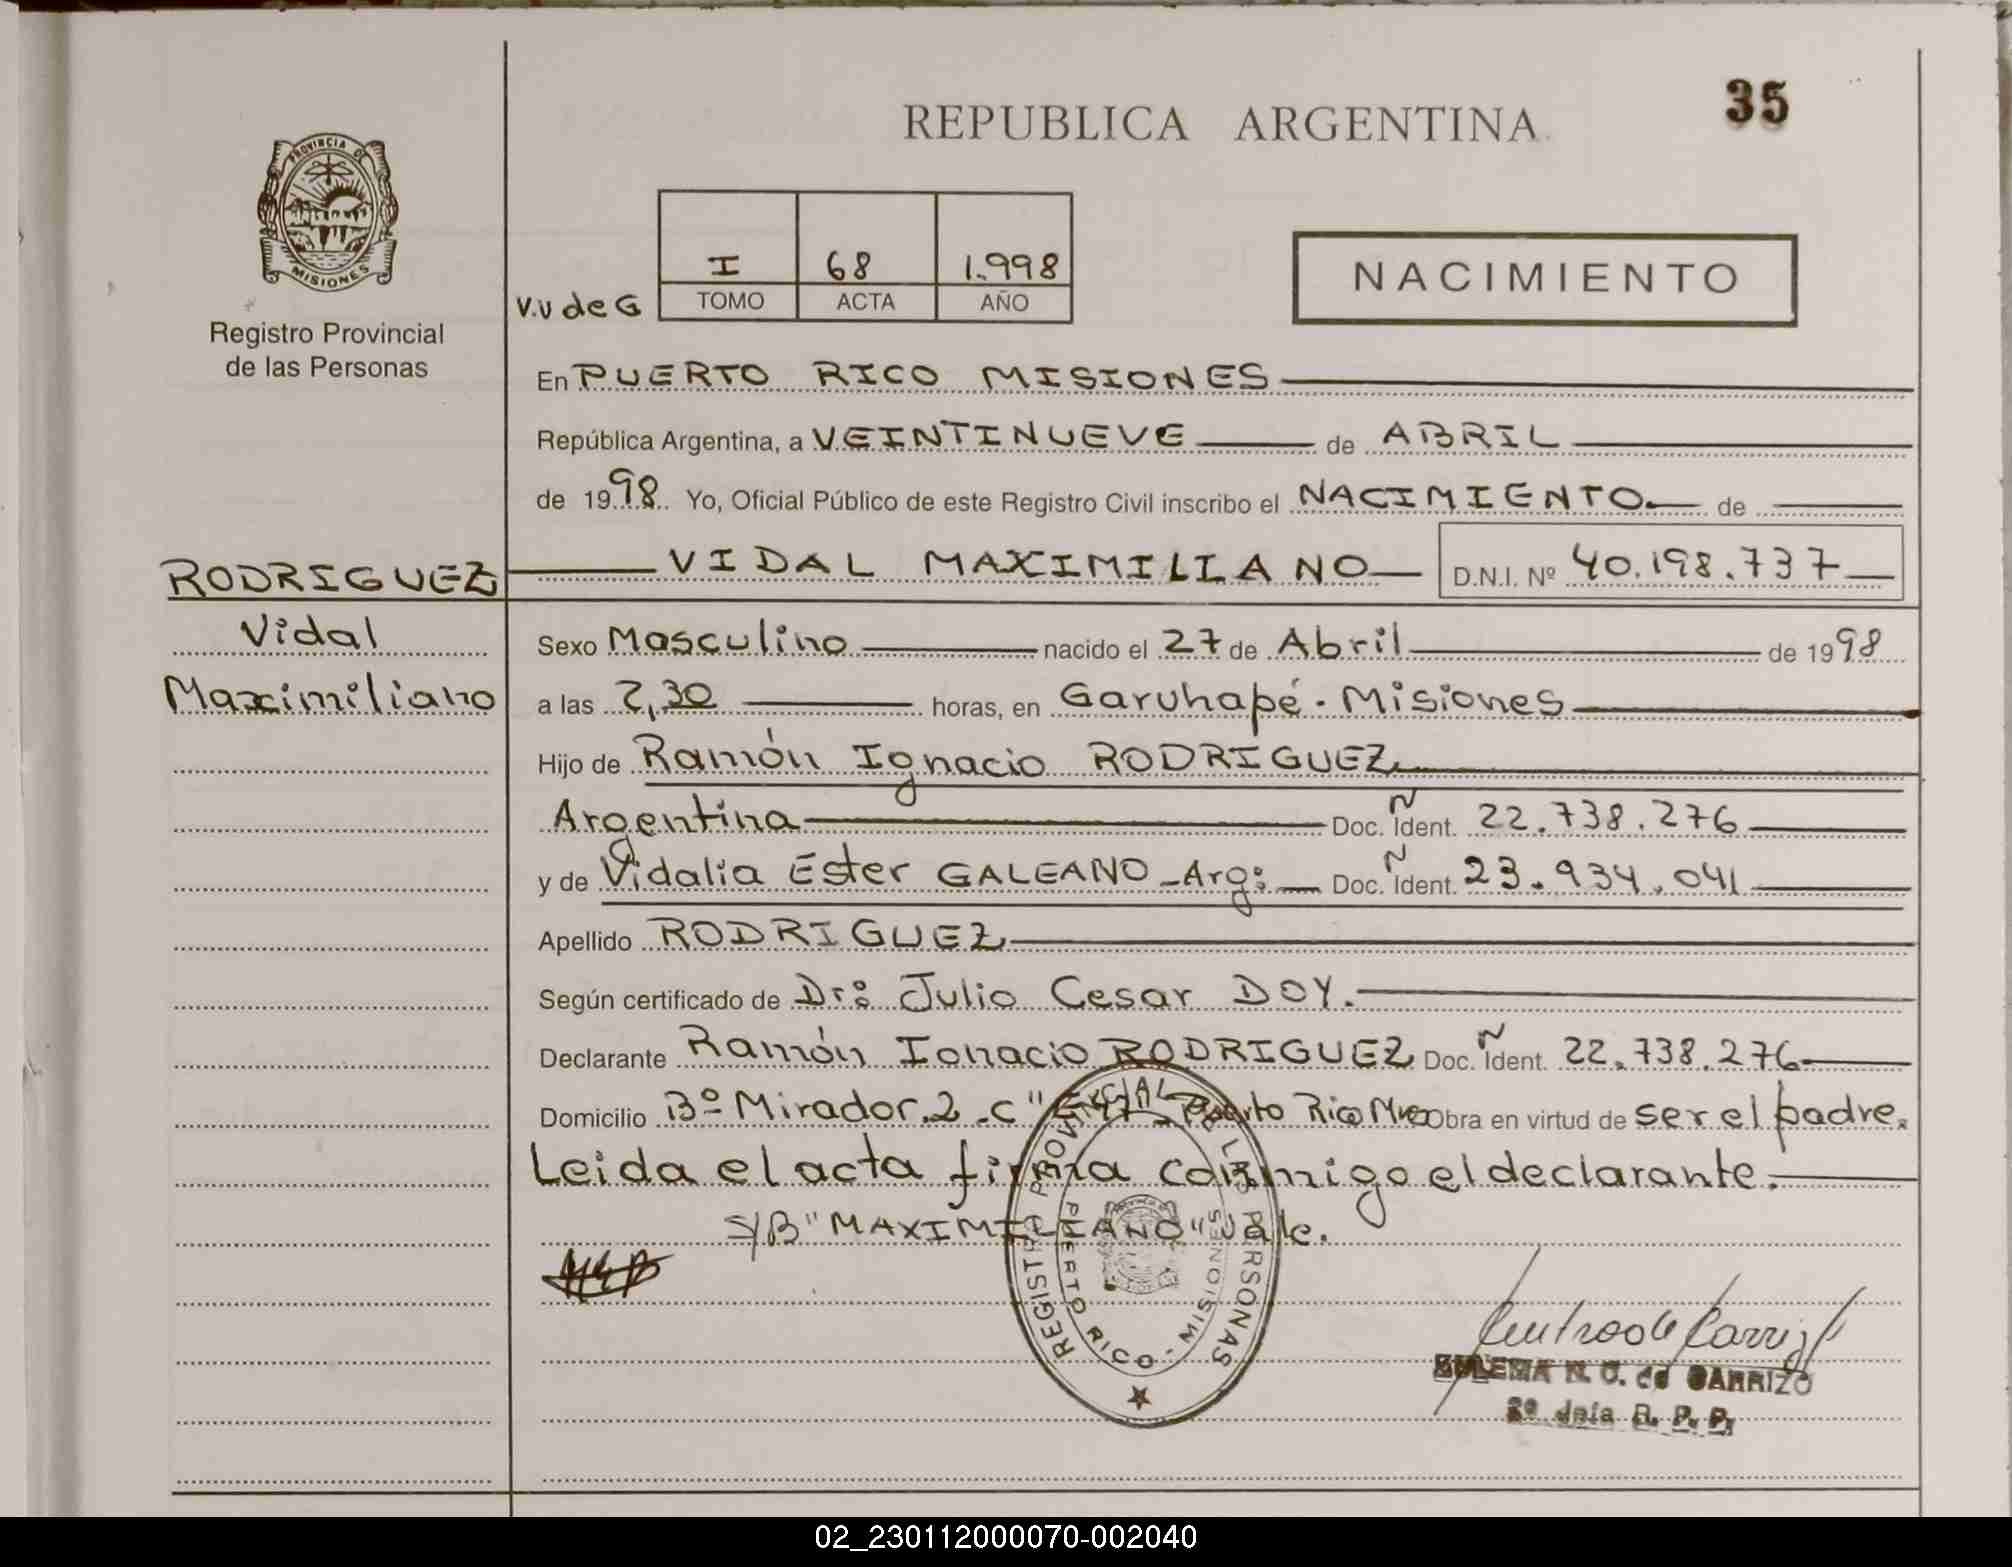 35
REPUBLICA ARGENTINA
PROVINCIA DE
MISIONES
Registro Provincial
de las Personas
I 68 1.998
TOMO ACTA AÑO
V.V de G
NACIMIENTO
En PUERTO RICO MISIONES
República Argentina, a VEINTINUEVE de ABRIL
de 1998 Yo, Oficial Público de este Registro Civil inscribo el NACIMIENTO de
VIDAL MAXIMILIANO D.N.I. Nº 40.198.737
RODRIGUEZ
Vidal
Maximiliano
Sexo Masculino nacido el 27 de Abril de 1998
a las 2,30 horas, en Garuhapé - Misiones
Hijo de Ramón Ignacio RODRIGUEZ
Argentina Doc. Ident. 22.738.276
y de Vidalia Ester GALEANO - Arg: Doc. Ident. 23.934.041
Apellido RODRIGUEZ
Según certificado de Dr: Julio Cesar DOY.
Declarante Ramón Ignacio RODRIGUEZ Doc. Ident. 22.738.276
Domicilio Bº Mirador 2 - C Puerto Rico Mnes Obra en virtud de ser el padre.
Leida el acta firma conmigo el declarante.
S/B "MAXIMILIANO" Vale.
REGISTRO PROVINCIAL DE LAS PERSONAS
PUERTO RICO - MISIONES
N. C. de CARRIZO
R. P. P.
02_230112000070-002040